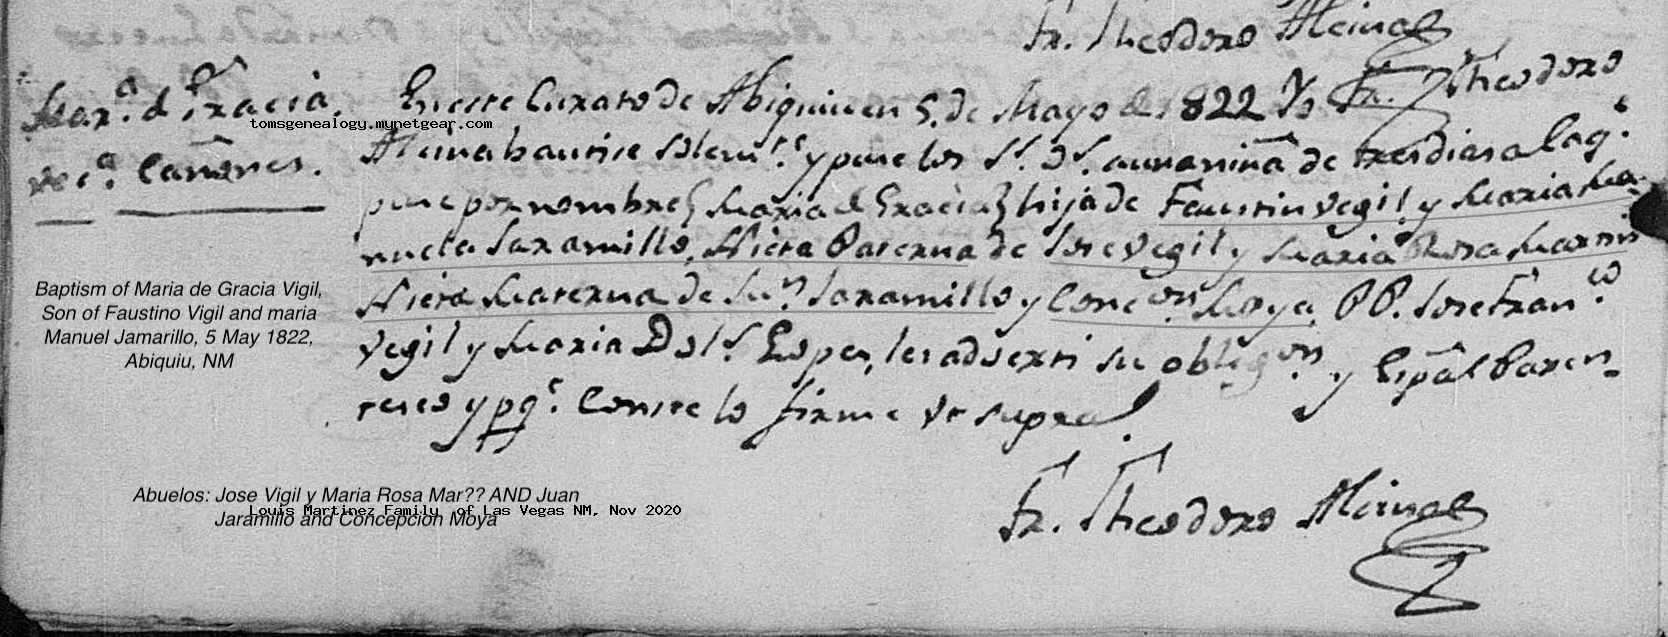 Fr. Theodoro Alcina
Mar.ª d Gracia.
vec.ª Cañones.
En este Curato de Abiquiu en 5. de Mayo de 1822 Yo Fr. Theodoro
Alcina bautise solem.te y puse los S.s O.s a una niña de tres dias a la q.e
puse por nombre Maria de Gracia hija de Faustin Vegil y Maria Ma-
nuela Jaramillo, Nieta Paterna de Jose Vegil y Maria Rosa Martin
Nieta Materna de Ju.n Jaramillo y Conc.on Moya. PP. Jose Fran.co
Vegil y Maria Dol.s Lopes, les adverti su oblig.on y Espâl Paren-
tesco y pq.e Conste lo firme vt supra.
Fr. Theodoro Alcina
tomsgenealogy.mynetgear.com
Baptism of Maria de Gracia Vigil,
Son of Faustino Vigil and maria
Manuel Jamarillo, 5 May 1822,
Abiquiu, NM
Abuelos: Jose Vigil y Maria Rosa Mar?? AND Juan
Jaramillo and Concepcion Moya
Louis Martinez Family, of Las Vegas NM, Nov 2020